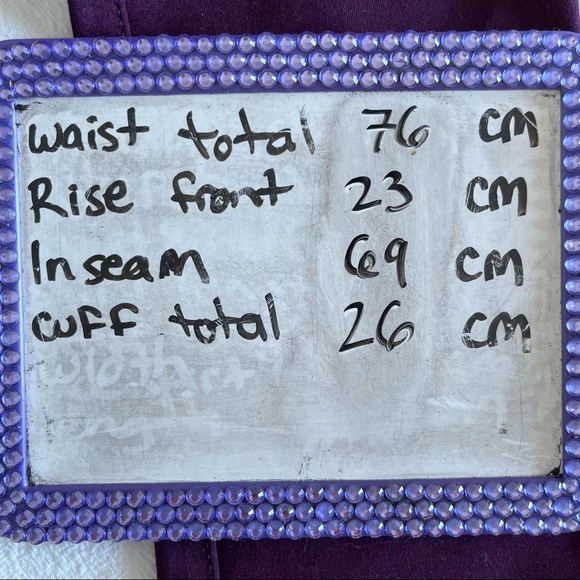 Waist total 76 cm
Rise front 23 cm
Inseam 69 cm
Cuff total 26 cm
width